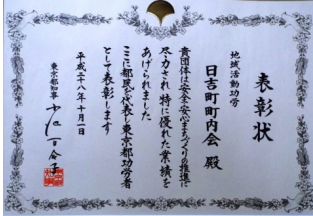 表彰状
地域活動功労
日吉町町内会 殿
貴団体は安全・安心まちづくりの推進に
尽力され特に優れた業績を
あげられました
ここに都民を代表し東京都功労者
として表彰します
平成二十八年十月一日
東京都知事 小池百合子